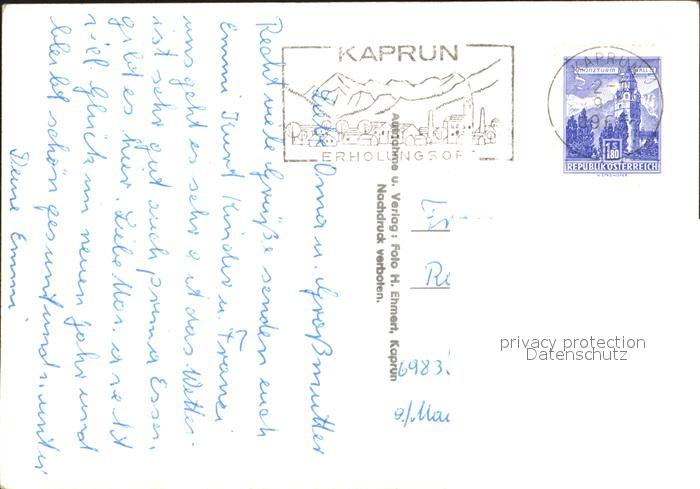 KAPRUN
ERHOLUNGSOR
KAPRUN
2
9
196
MÜNZTURM HALL
1.80
REPUBLIK ÖSTERREICH
Liebe Oma u. Großmutter
Recht viele Grüße senden euch
Emmi Kurt Kinder u. Franzi
uns geht es sehr gut das Wetter
ist sehr gut auch prima Essen,
gibt es hier. Liebe
viel Glück im neuen Jahr und
bleibt schön gesund
Deine Emmi
Aufnahme u. Verlag: Foto H. Ehmert, Kaprun
Nachdruck verboten.
6983
a/Mai
privacy protection
Datenschutz